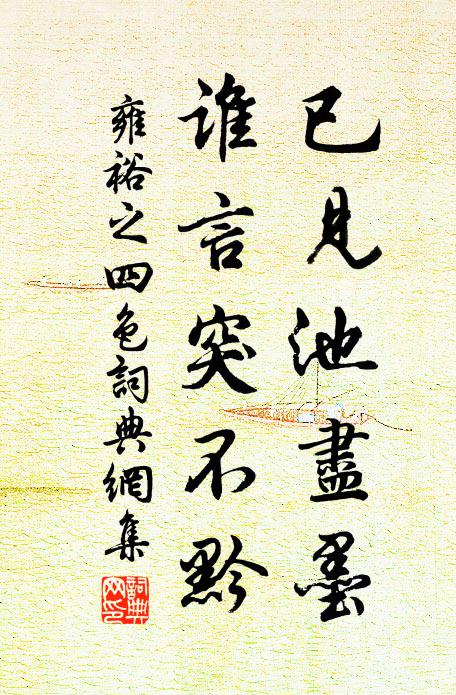 已見池盡墨
谁言突不黔
雍裕之四色詞典網集
詞典